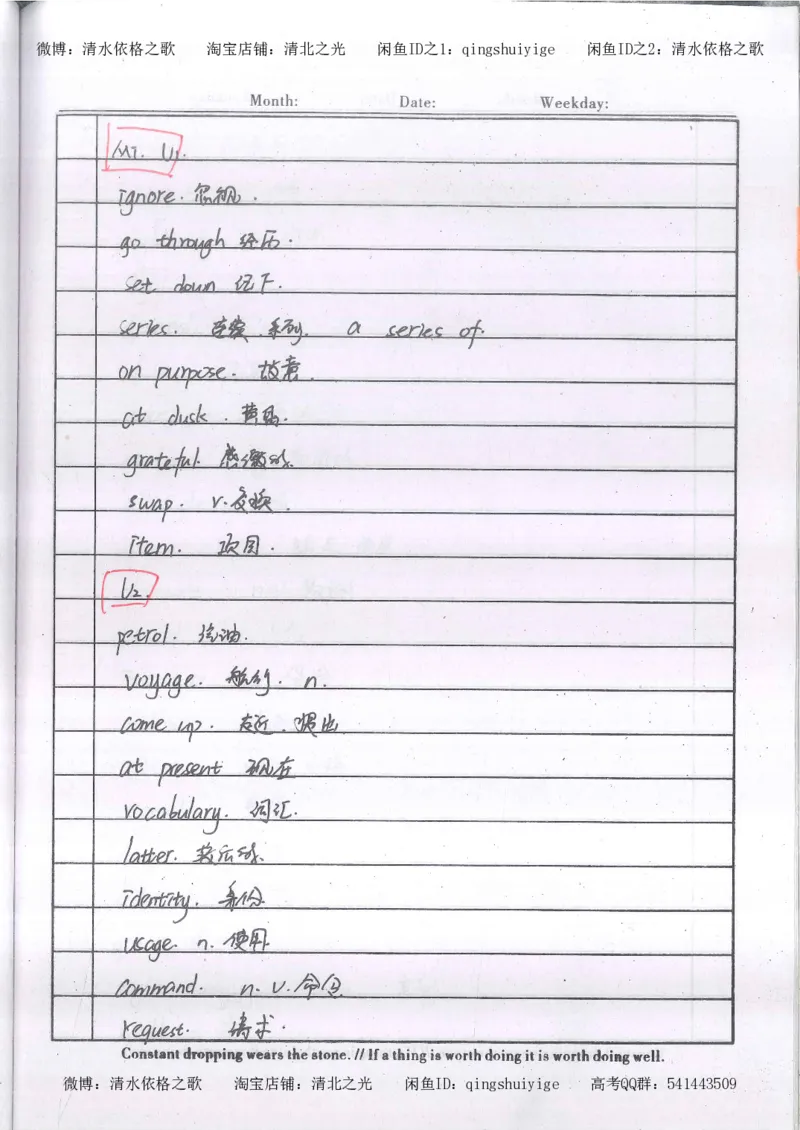 微博：清水依格之歌 淘宝店铺：清北之光 闲鱼ID之1：qingshuiyige 闲鱼ID之2：清水依格之歌
Month: Date: Weekday:
M1. U1.
ignore. 忽视.
go through 经历.
set down 记下.
series. 连续. 系列. a series of.
on purpose. 故意.
at dusk. 黄昏.
grateful. 感激的.
swap. v. 交换.
item. 项目.
U2.
petrol. 汽油.
voyage. 航行. n.
come up. 走近. 提出
at present 现在
vocabulary. 词汇.
latter. 较后的.
identity. 身份
usage. n. 使用.
command. n. v. 命令
request. 请求.
Constant dropping wears the stone. // If a thing is worth doing it is worth doing well.
微博：清水依格之歌 淘宝店铺：清北之光 闲鱼ID：qingshuiyige 高考QQ群：541443509